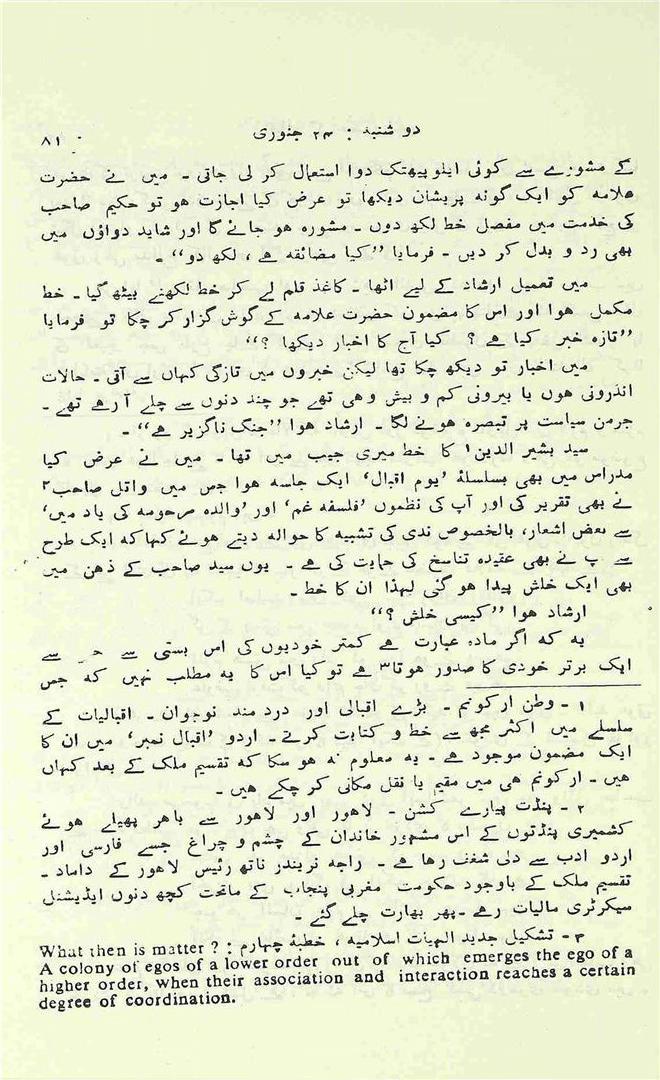 دو شنبہ : ۲۴ جنوری
۸۱
کے مشورے سے کوئی ایلوپیتھک دوا استعمال کر لی جاتی ۔ میں نے حضرت
علامہ کو ایک گونہ پریشان دیکھا تو عرض کیا اجازت ہو تو حکیم صاحب
کی خدمت میں مفصل خط لکھ دوں ۔ مشورہ ہو جائے گا اور شاید دواؤں میں
بھی رد و بدل کر دیں ۔ فرمایا ’’کیا مضائقہ ہے ، لکھ دو‘‘ ۔
میں تعمیل ارشاد کے لیے اٹھا ۔ کاغذ قلم لے کر خط لکھنے بیٹھ گیا ۔ خط
مکمل ہوا اور اس کا مضمون حضرت علامہ کے گوش گزار کر چکا تو فرمایا
’’تازہ خبر کیا ہے ؟ کیا آج کا اخبار دیکھا ؟‘‘
میں اخبار تو دیکھ چکا تھا لیکن خبروں میں تازگی کہاں سے آتی ۔ حالات
اندرونی ہوں یا بیرونی کم و بیش وہی تھے جو چند دنوں سے چلے آ رہے تھے ۔
جرمن سیاست پر تبصرہ ہونے لگا ۔ ارشاد ہوا ’’جنگ ناگزیر ہے‘‘ ۔
سید بشیر الدین۱ کا خط میری جیب میں تھا ۔ میں نے عرض کیا
مدراس میں بھی بسلسلۂ ’یوم اقبال‘ ایک جلسہ ہوا جس میں واتل صاحب۲
نے بھی تقریر کی اور آپ کی نظموں ’فلسفہ غم‘ اور ’والدہ مرحومہ کی یاد میں‘
سے بعض اشعار، بالخصوص ندی کی تشبیہ کا حوالہ دیتے ہوئے کہا کہ ایک طرح
سے پ نے بھی عقیدہ تناسخ کی حمایت کی ہے ۔ یوں سید صاحب کے ذہن میں
بھی ایک خلش پیدا ہو گئی لہذا ان کا خط ۔
ارشاد ہوا ’’کیسی خلش ؟‘‘
یہ کہ اگر مادہ عبارت ہے کمتر خودیوں کی اس بستی سے سے
ایک برتر خودی کا صدور ہوتا۳ ہے تو کیا اس کا یہ مطلب نہیں کہ جس
۱ - وطن ارکونم ۔ بڑے اقبالی اور درد مند نوجوان ۔ اقبالیات کے
سلسلے میں اکثر مجھ سے خط و کتابت کرتے ۔ اردو ’اقبال نمبر‘ میں ان کا
ایک مضمون موجود ہے ۔ یہ معلوم نہ ہو سکا کہ تقسیم ملک کے بعد کہاں
ہیں ۔ ارکونم ہی میں مقیم یا نقل مکانی کر چکے ہیں ۔
۲ - پنڈت پیارے کشن ۔ لاہور اور لاہور سے باہر پھیلے ہوئے
کشمیری پنڈتوں کے اس مشہور خاندان کے چشم و چراغ جسے فارسی اور
اردو ادب سے دلی شغف رہا ہے ۔ راجہ نریندر ناتھ رئیس لاہور کے داماد ۔
تقسیم ملک کے باوجود حکومت مغربی پنجاب کے ماتحت کچھ دنوں ایڈیشنل
سیکرٹری مالیات رہے ۔ پھر بھارت چلے گئے ۔
۳ - تشکیل جدید الٰہیات اسلامیہ ، خطبۂ چہارم : What then is matter ?
A colony of egos of a lower order out of which emerges the ego of a
higher order, when their association and interaction reaches a certain
degree of coordination.